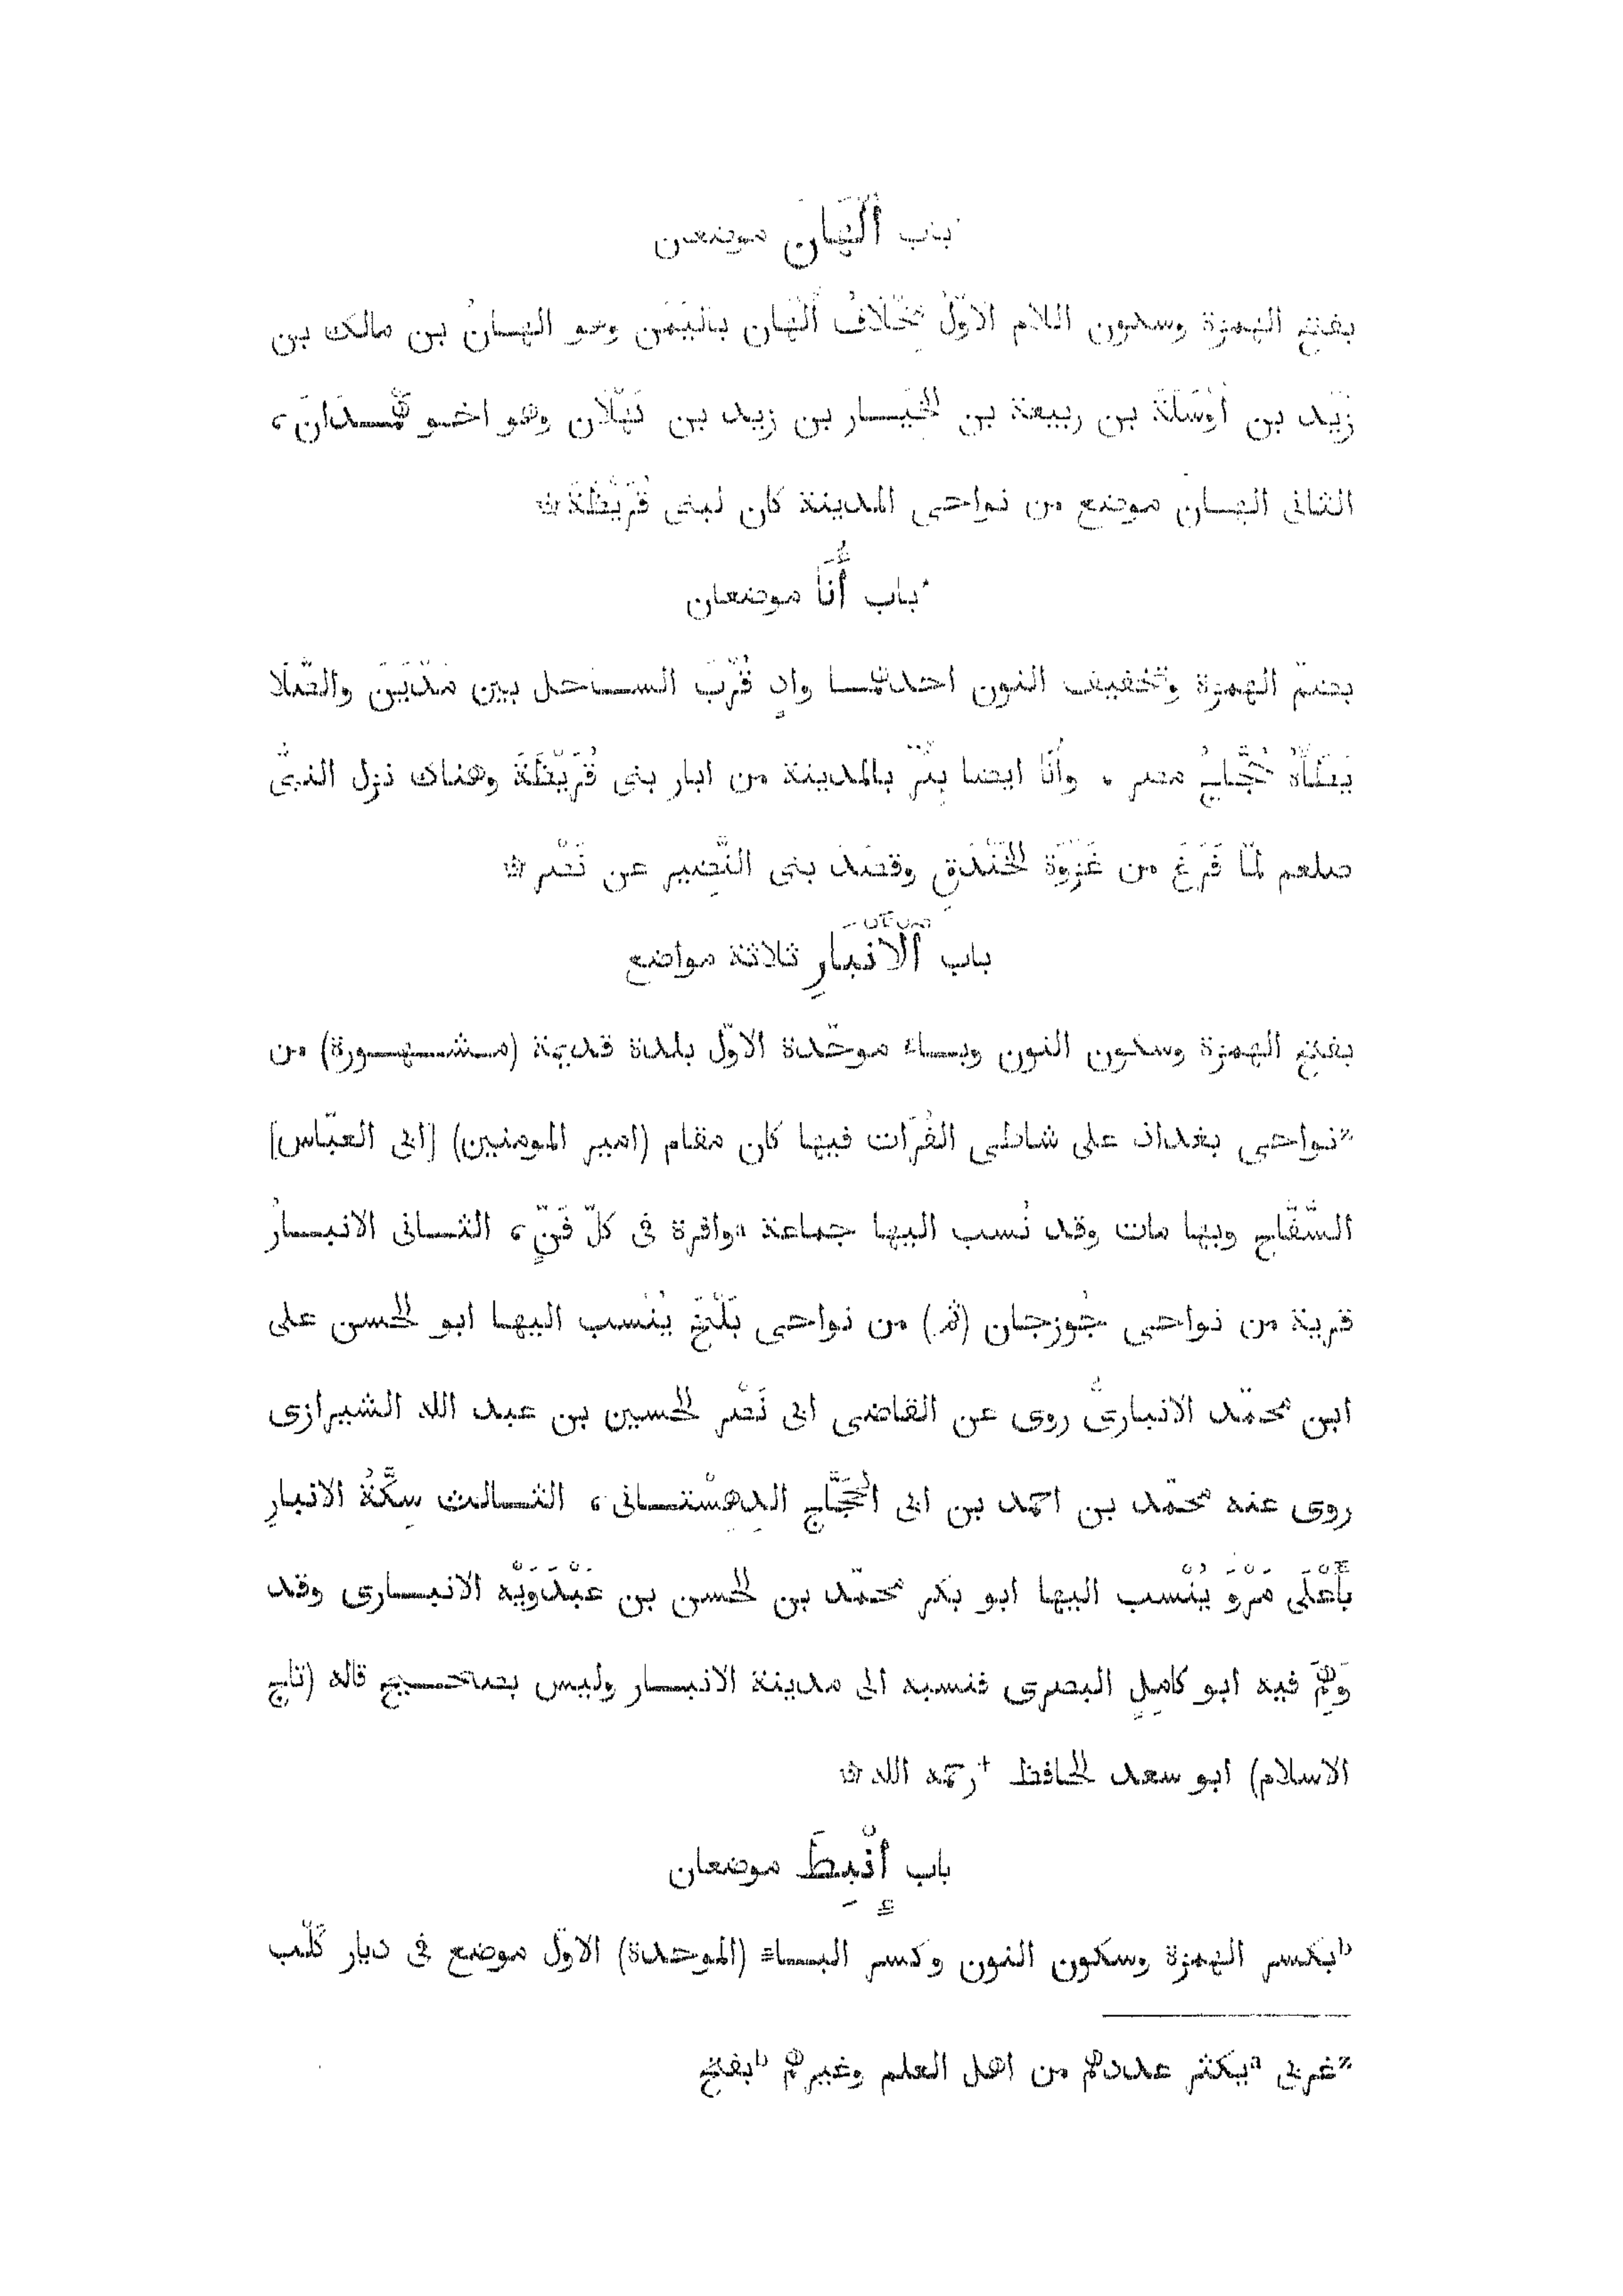 باب أَلْهَانَ موضعان
بفتح الهمزة وسكون اللام الاوّلُ مِخْلَافُ أَلْهَان باليَمَن وهو الهانُ بن مالك بن
زَيْد بن أَوْسَلَةَ بن ربيعة بن الخيار بن زيد بن كَهْلَان وهو اخو هَمْدَانَ ،
الثانى الهان موضع من نواحى المدينة كان لبنى قُرَيْظَةَ ۞
*باب أُنَا موضعان
بضمّ الهمزة وتخفيف النون احدهما وادٍ قُرْبَ الساحل بين مَدْيَنَ والصَّلَا
يَطَأُهُ حُجَّاجُ مصر ، وأُنَا ايضا بِئْرٌ بالمدينة من ابار بنى قُرَيْظَةَ وهناك نزل النبىُّ
صلعم لمّا فَرَغَ من غَزْوَةِ الخَنْدَقِ وقصَدَ بنى النَّضِير عن نَصْر ۞
باب اَلْأَنْبَارِ ثلاثة مواضع
بفتح الهمزة وسكون النون وباء موحّدة الاوّل بلدة قديمة (مشهورة) من
*نواحى بغداد على شاطى الفُرَات فيها كان مقام (امير المومنين) [ابى العبّاس]
السَّفَّاح وبها مات وقد نُسب اليها جماعة "وافرة فى كلّ فَنٍّ ، الثانى الانبارُ
قرية من نواحى جُوزجان (ثم) من نواحى بَلْخَ يُنْسب اليها ابو الحسن على
ابن محمّد الانبارىُّ روى عن القاضى ابى نَصْر الحسين بن عبد الله الشيرازى
روى عنه محمّد بن احمد بن ابى الحَجَّاج الدِهِسْتانى ، الثالث سِكَّةُ الانبارِ
بأَعْلَى مَرْوَ يُنْسب اليها ابو بكر محمّد بن الحسن بن عَبْدَوَيْه الانبارى وقد
وَهِمَ فيه ابو كامِلٍ البصرى فنسبه الى مدينة الانبار وليس بصحيح قاله (تاج
الاسلام) ابو سعد الحافظ †رحمه الله ۞
باب إِنْبِطَ موضعان
بكسر الهمزة وسكون النون وكسر الباء (الموحدة) الاوّل موضع فى ديار كَلْب
*غربى "يكثر عددهم من اهل العلم وغيرهم بفتح